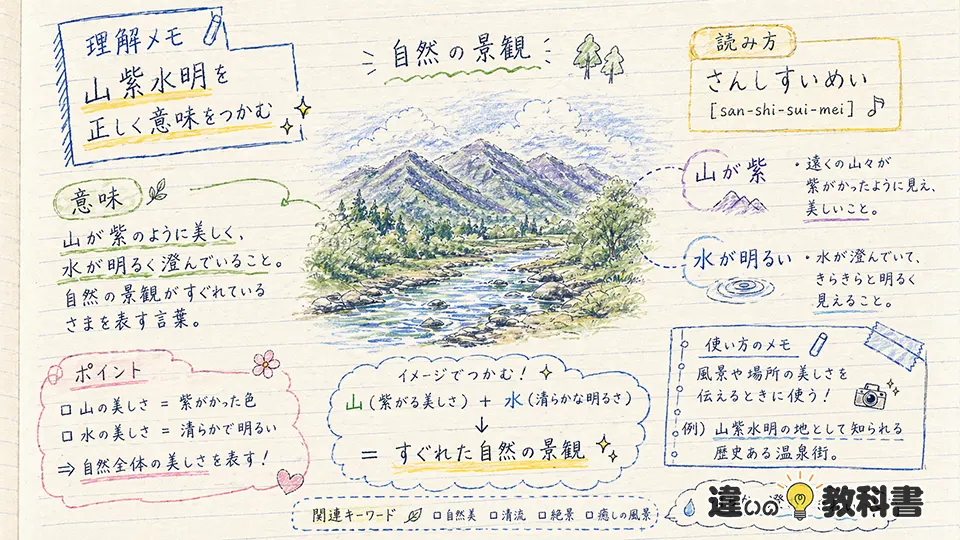 理解メモ
山紫水明を
正しく意味をつかむ
自然の景観
読み方
さんしすいめい
[san-shi-sui-mei]
意味
山が紫のように美しく、
水が明るく澄んでいること。
自然の景観がすぐれている
さまを表す言葉。
山が紫
・遠くの山々が
紫がかったように見え、
美しいこと。
水が明るい
・水が澄んでいて、
きらきらと明るく
見えること。
ポイント
□ 山の美しさ = 紫がかった色
□ 水の美しさ = 清らかで明るい
⇒ 自然全体の美しさを表す！
イメージでつかむ！
山（紫がる美しさ）+ 水（清らかな明るさ）
↓
= すぐれた自然の景観
使い方のメモ
風景や場所の美しさを
伝えるときに使う！
例）山紫水明の地として知られる
歴史ある温泉街。
関連キーワード □自然美 □清流 □絶景 □癒しの風景
違いの教科書